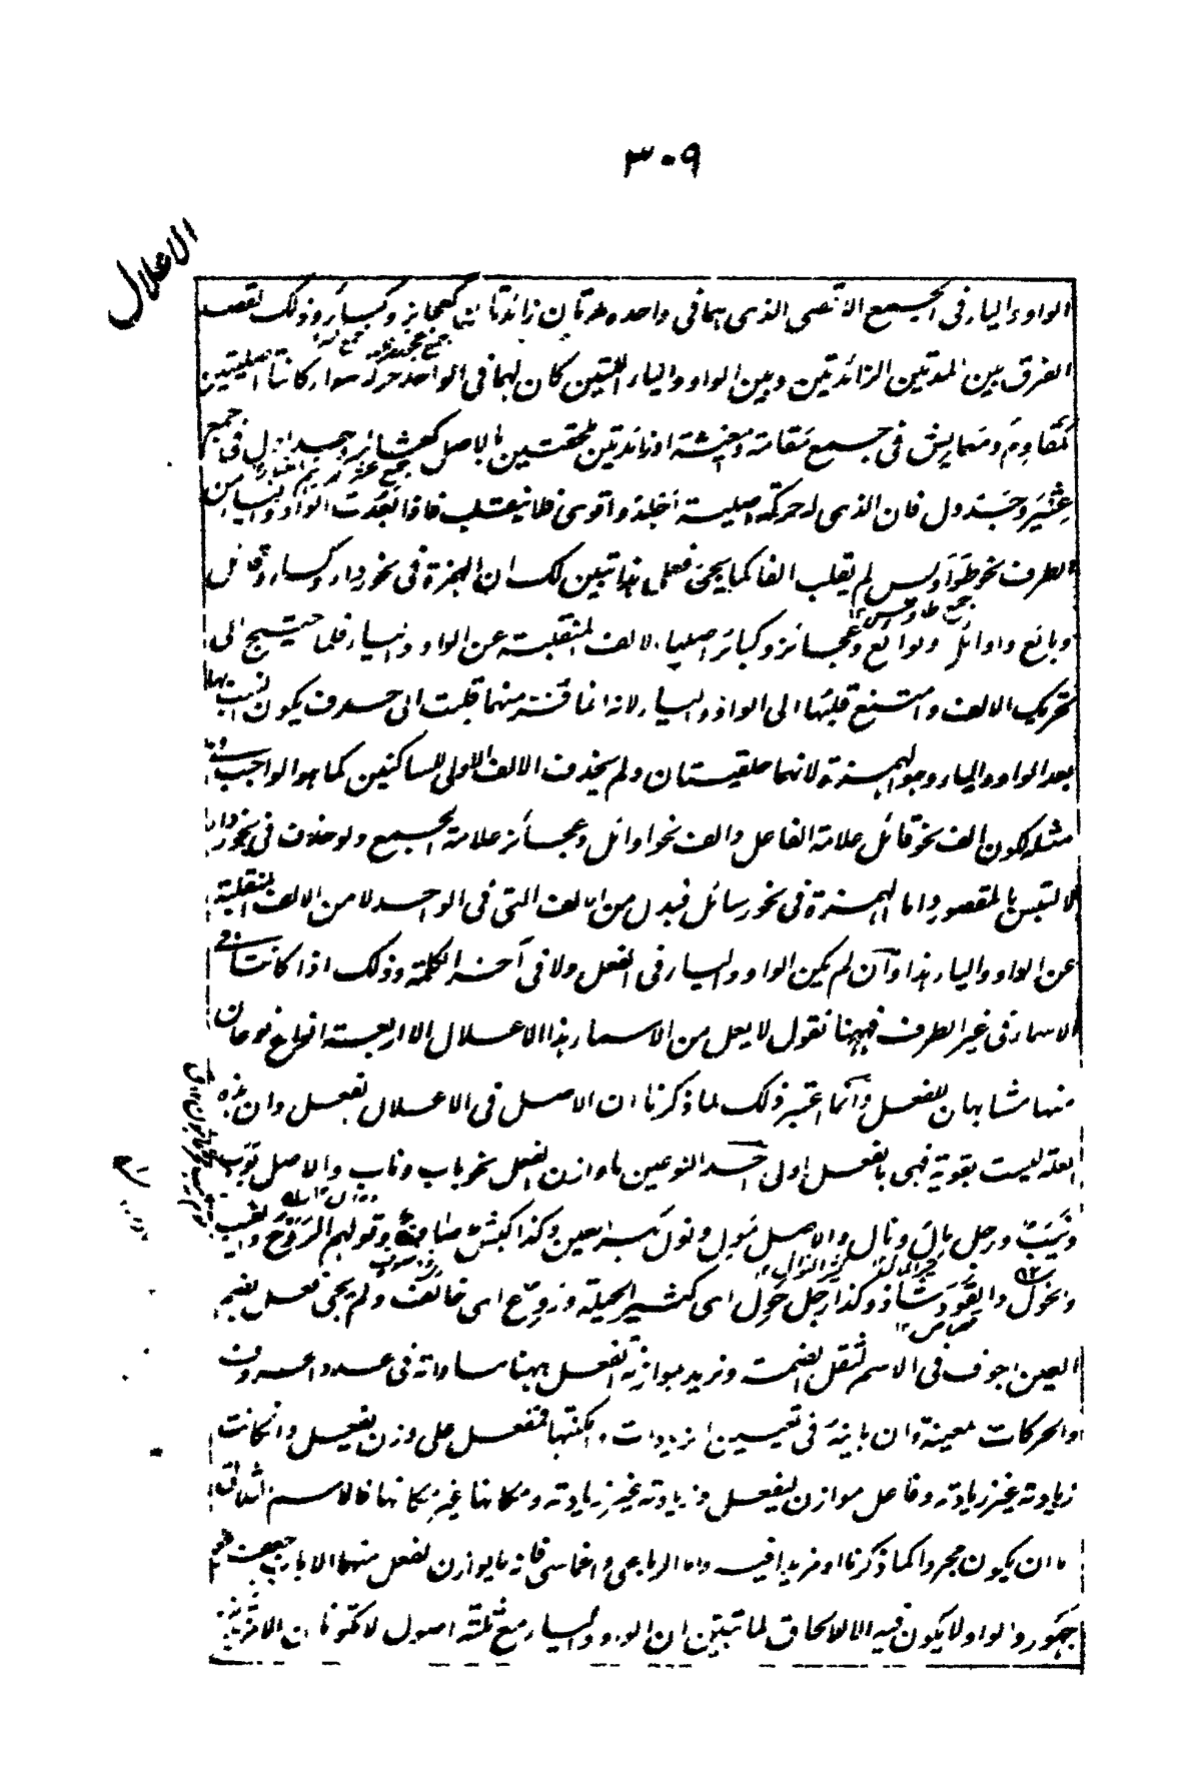 ٣٠٩
الاعلال
الواو والياء فى الجمع الاقصى الذى هما فى واحده مدتان زائدتان كعجائز وكبائر وذلك لقصد
الفرق بين المدتين الزائدتين وبين الواو والياء اللتين كان لهما فى الواحد حركة سواء كانتا اصليتين
كمقاوم ومعايش فى جمع مقامة ومعيشة او زائدتين ملحقتين بالاصل كعثاير وجداول فى جمع
عثير وجدول فان الذى له حركة اصلية اجلد واقوى فلا ينقلب فاذا بعدت الواو والياء من
الطرف نحو طواويس لم يقلب الفا كما يجئ فعلى هذا تبين لك ان الهمزة فى نحو رداء وكساء وقائل
جمع طاوس ١٢
وبائع واوائل وبوائع وعجائز وكبائر اصلها الالف المنقلبة عن الواو والياء فلما احتيج الى
تحريك الالف وامتنع قلبها الى الواو والياء لانه انما فر منهما قلبت الى حرف يكون انسب بها
بعد الواو والياء وهو الهمزة لانهما حلقيتان ولم يحذف الالف الاولى للساكنين كما هو الواجب فى
مثله لكون الف نحو قائل علامة الفاعل والف نحو اوائل وعجائز علامة الجمع ولو حذفت فى نحو رداء
لالتبس بالمقصور واما الهمزة فى نحو رسائل فبدل من الالف التى فى الواحد لا من الالف المنقلبة
عن الواو والياء هذا وان لم يكن الواو والياء فى الفعل ولا فى آخر الكلمة وذلك اذا كانتا فى
الاسماء فى غير الطرف فههنا نقول لا يعل من الاسماء هذا الاعلال الا اربعة انواع نوعان
منها مشابهان للفعل وانما اعتبر ذلك لما ذكرنا ان الاصل فى الاعلال الفعل وان هذه
العلة ليست بقوية فهى بالفعل اولى احد النوعين ما وازن الفعل نحو باب وناب والاصل بوب
ونيب ورجل مال ونال والاصل مول ونول بكسر العين وكذا كبش صاف وقولهم الروح والغيب
والخول والقود شاذ وكذا رجل حول اى كثير الحيلة وروع اى خائف ولم يجئ فعل بضم
العين اجوف فى الاسم لثقل الضمة ونريد بموازنة الفعل ههنا مساواته فى عدد الحروف
والحركات معينة وان باينه فى تعيين الزيادات وامكنتها فمفعل على وزن يفعل وان كانت
زيادته غير زيادته وفاعل موازن ليفعل وزيادته غير زيادته ومكانها غير مكانها فالاسم الثلاثى
اما ان يكون مجردا كما ذكرنا او مزيدا فيه واما الرباعى والخماسى فانه لا يوازن الفعل منهما الا باب جعفر نحو
جهور والواو لا يكون فيه الا للالحاق لما تبين ان الواو والياء مع ثلثة اصول لا تكونان الا مزيدتين